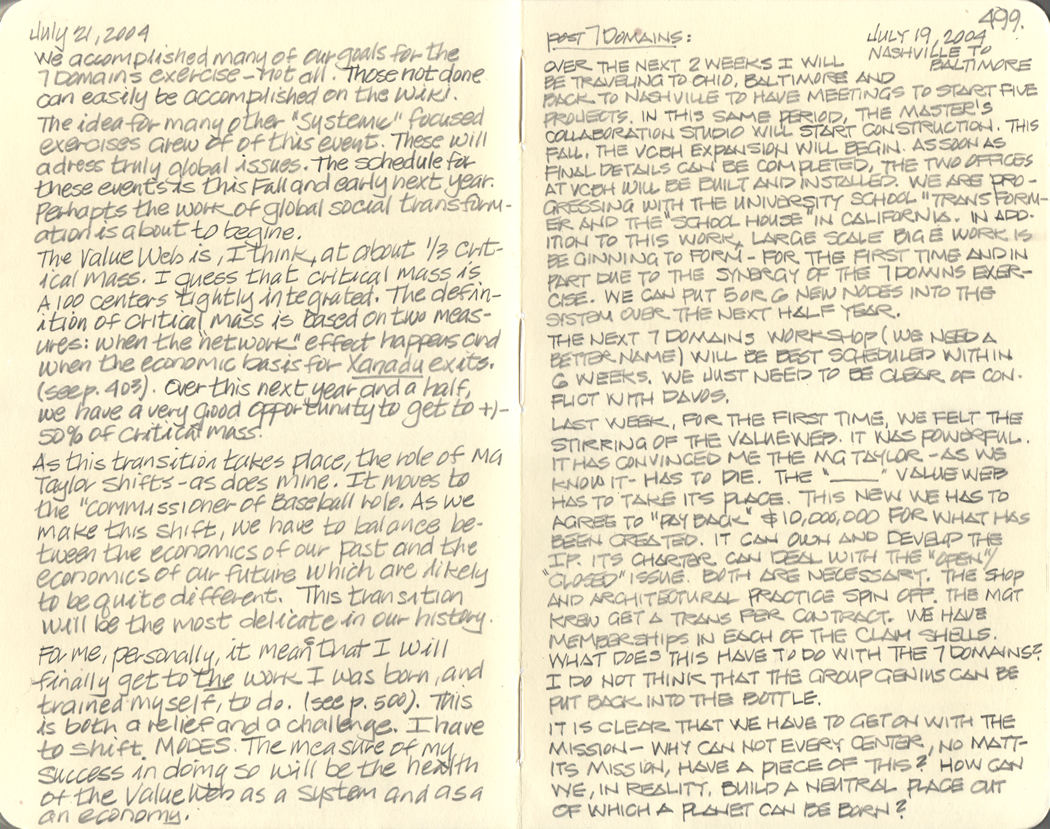 July 21, 2004
We accomplished many of our goals for the
7 Domains exercise - not all. Those not done
can easily be accomplished on the Wiki.
The idea for many other "Systemic" focused
exercises grew of of this event. These will
adress truly global issues. The schedule for
these events is this Fall and early next year.
Perhapts the work of global social transform-
ation is about to begine.
The Value Web is, I think, at about 1/3 Crit-
ical mass. I guess that critical mass is
A 100 centers tightly integrated. The defin-
ition of critical mass is based on two meas-
ures: when the network" effect happens and
when the economic basis for Xanadu exits.
(see p. 403). Over this next year and a half,
we have a very good opportunity to get to +/-
50% of critical mass.
As this transition takes place, the role of MG
Taylor shifts - as does mine. It moves to
the "commissioner of Baseball role. As we
make this shift, we have to balance be-
tween the economics of our past and the
economics of our future which are likely
to be quite different. This transition
will be the most delicate in our history.
For me, personally, it means that I will
finally get to the work I was born, and
trained myself, to do. (see p. 500). This
is both a relief and a challenge. I have
to shift MODES. The measure of my
success in doing so will be the health
of the ValueWeb as a system and as a
an economy.
499.
POST 7 DOMAINS:
JULY 19, 2004
NASHVILLE TO
BALTIMORE
OVER THE NEXT 2 WEEKS I WILL
BE TRAVELING TO OHIO, BALTIMORE AND
BACK TO NASHVILLE TO HAVE MEETINGS TO START FIVE
PROJECTS. IN THIS SAME PERIOD, THE MASTER'S
COLLABORATION STUDIO WILL START CONSTRUCTION. THIS
FALL, THE VCBH EXPANSION WILL BEGIN. AS SOON AS
FINAL DETAILS CAN BE COMPLETED, THE TWO OFFICES
AT VCBH WILL BE BUILT AND INSTALLED. WE ARE PRO-
GRESSING WITH THE UNIVERSITY SCHOOL "TRANSFORM-
ER AND THE "SCHOOL HOUSE" IN CALIFORNIA. IN ADD-
ITION TO THIS WORK, LARGE SCALE BIG E WORK IS
BE GINNING TO FORM - FOR THE FIRST TIME AND IN
PART DUE TO THE SYNERGY OF THE 7 DOMINS EXER-
CISE. WE CAN PUT 5 OR 6 NEW NODES INTO THE
SYSTEM OVER THE NEXT HALF YEAR.
THE NEXT 7 DOMAINS WORKSHOP (WE NEED A
BETTER NAME) WILL BE BEST SCHEDULED WITHIN
6 WEEKS. WE JUST NEED TO BE CLEAR OF CON-
FLICT WITH DAVOS.
LAST WEEK, FOR THE FIRST TIME, WE FELT THE
STIRRING OF THE VALUEWEB. IT WAS POWERFUL.
IT HAS CONVINCED ME THE MG TAYLOR - AS WE
KNOW IT - HAS TO DIE. THE "____" VALUE WEB
HAS TO TAKE ITS PLACE. THIS NEW WE HAS TO
AGREE TO "PAY BACK" $10,000,000 FOR WHAT HAS
BEEN CREATED. IT CAN OWN AND DEVELOP THE
IP. IT'S CHARTER CAN DEAL WITH THE "OPEN"/
"CLOSED" ISSUE. BOTH ARE NECESSARY. THE SHOP
AND ARCHITECTURAL PRACTICE SPIN OFF. THE MGT
KREW GET A TRANS PER CONTRACT. WE HAVE
MEMBERSHIPS IN EACH OF THE CLAM SHELLS.
WHAT DOES THIS HAVE TO DO WITH THE 7 DOMAINS?
I DO NOT THINK THAT THE GROUP GENIUS CAN BE
PUT BACK INTO THE BOTTLE.
IT IS CLEAR THAT WE HAVE TO GET ON WITH THE
MISSION - WHY CAN NOT EVERY CENTER, NO MATT-
ITS MISSION, HAVE A PIECE OF THIS? HOW CAN
WE, IN REALITY, BUILD A NEUTRAL PLACE OUT
OF WHICH A PLANET CAN BE BORN?